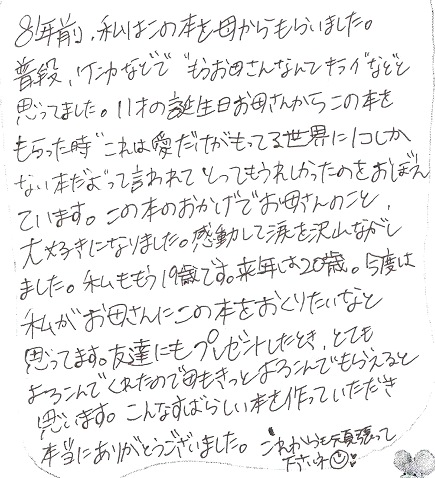 8年前、私はこの本を母からもらいました。
普段、ケンカなどで"もうお母さんなんてキライ"などと
思ってました。11才の誕生日お母さんからこの本を
もらった時"これは愛だけがもってる世界に1コしか
ない本だよって言われてとってもうれしかったのをおぼえ
ています。この本のおかげでお母さんのこと、
大好きになりました。感動して涙を沢山ながし
ました。私ももう19歳です。来年は20歳。今度は
私がお母さんにこの本をおくりたいなと
思ってます。友達にもプレゼントしたとき、とても
よろこんでくれたので母もきっとよろこんでもらえると
思います。こんなすばらしい本を作っていただき
本当にありがとうございました。これからも頑張って
下さいネ